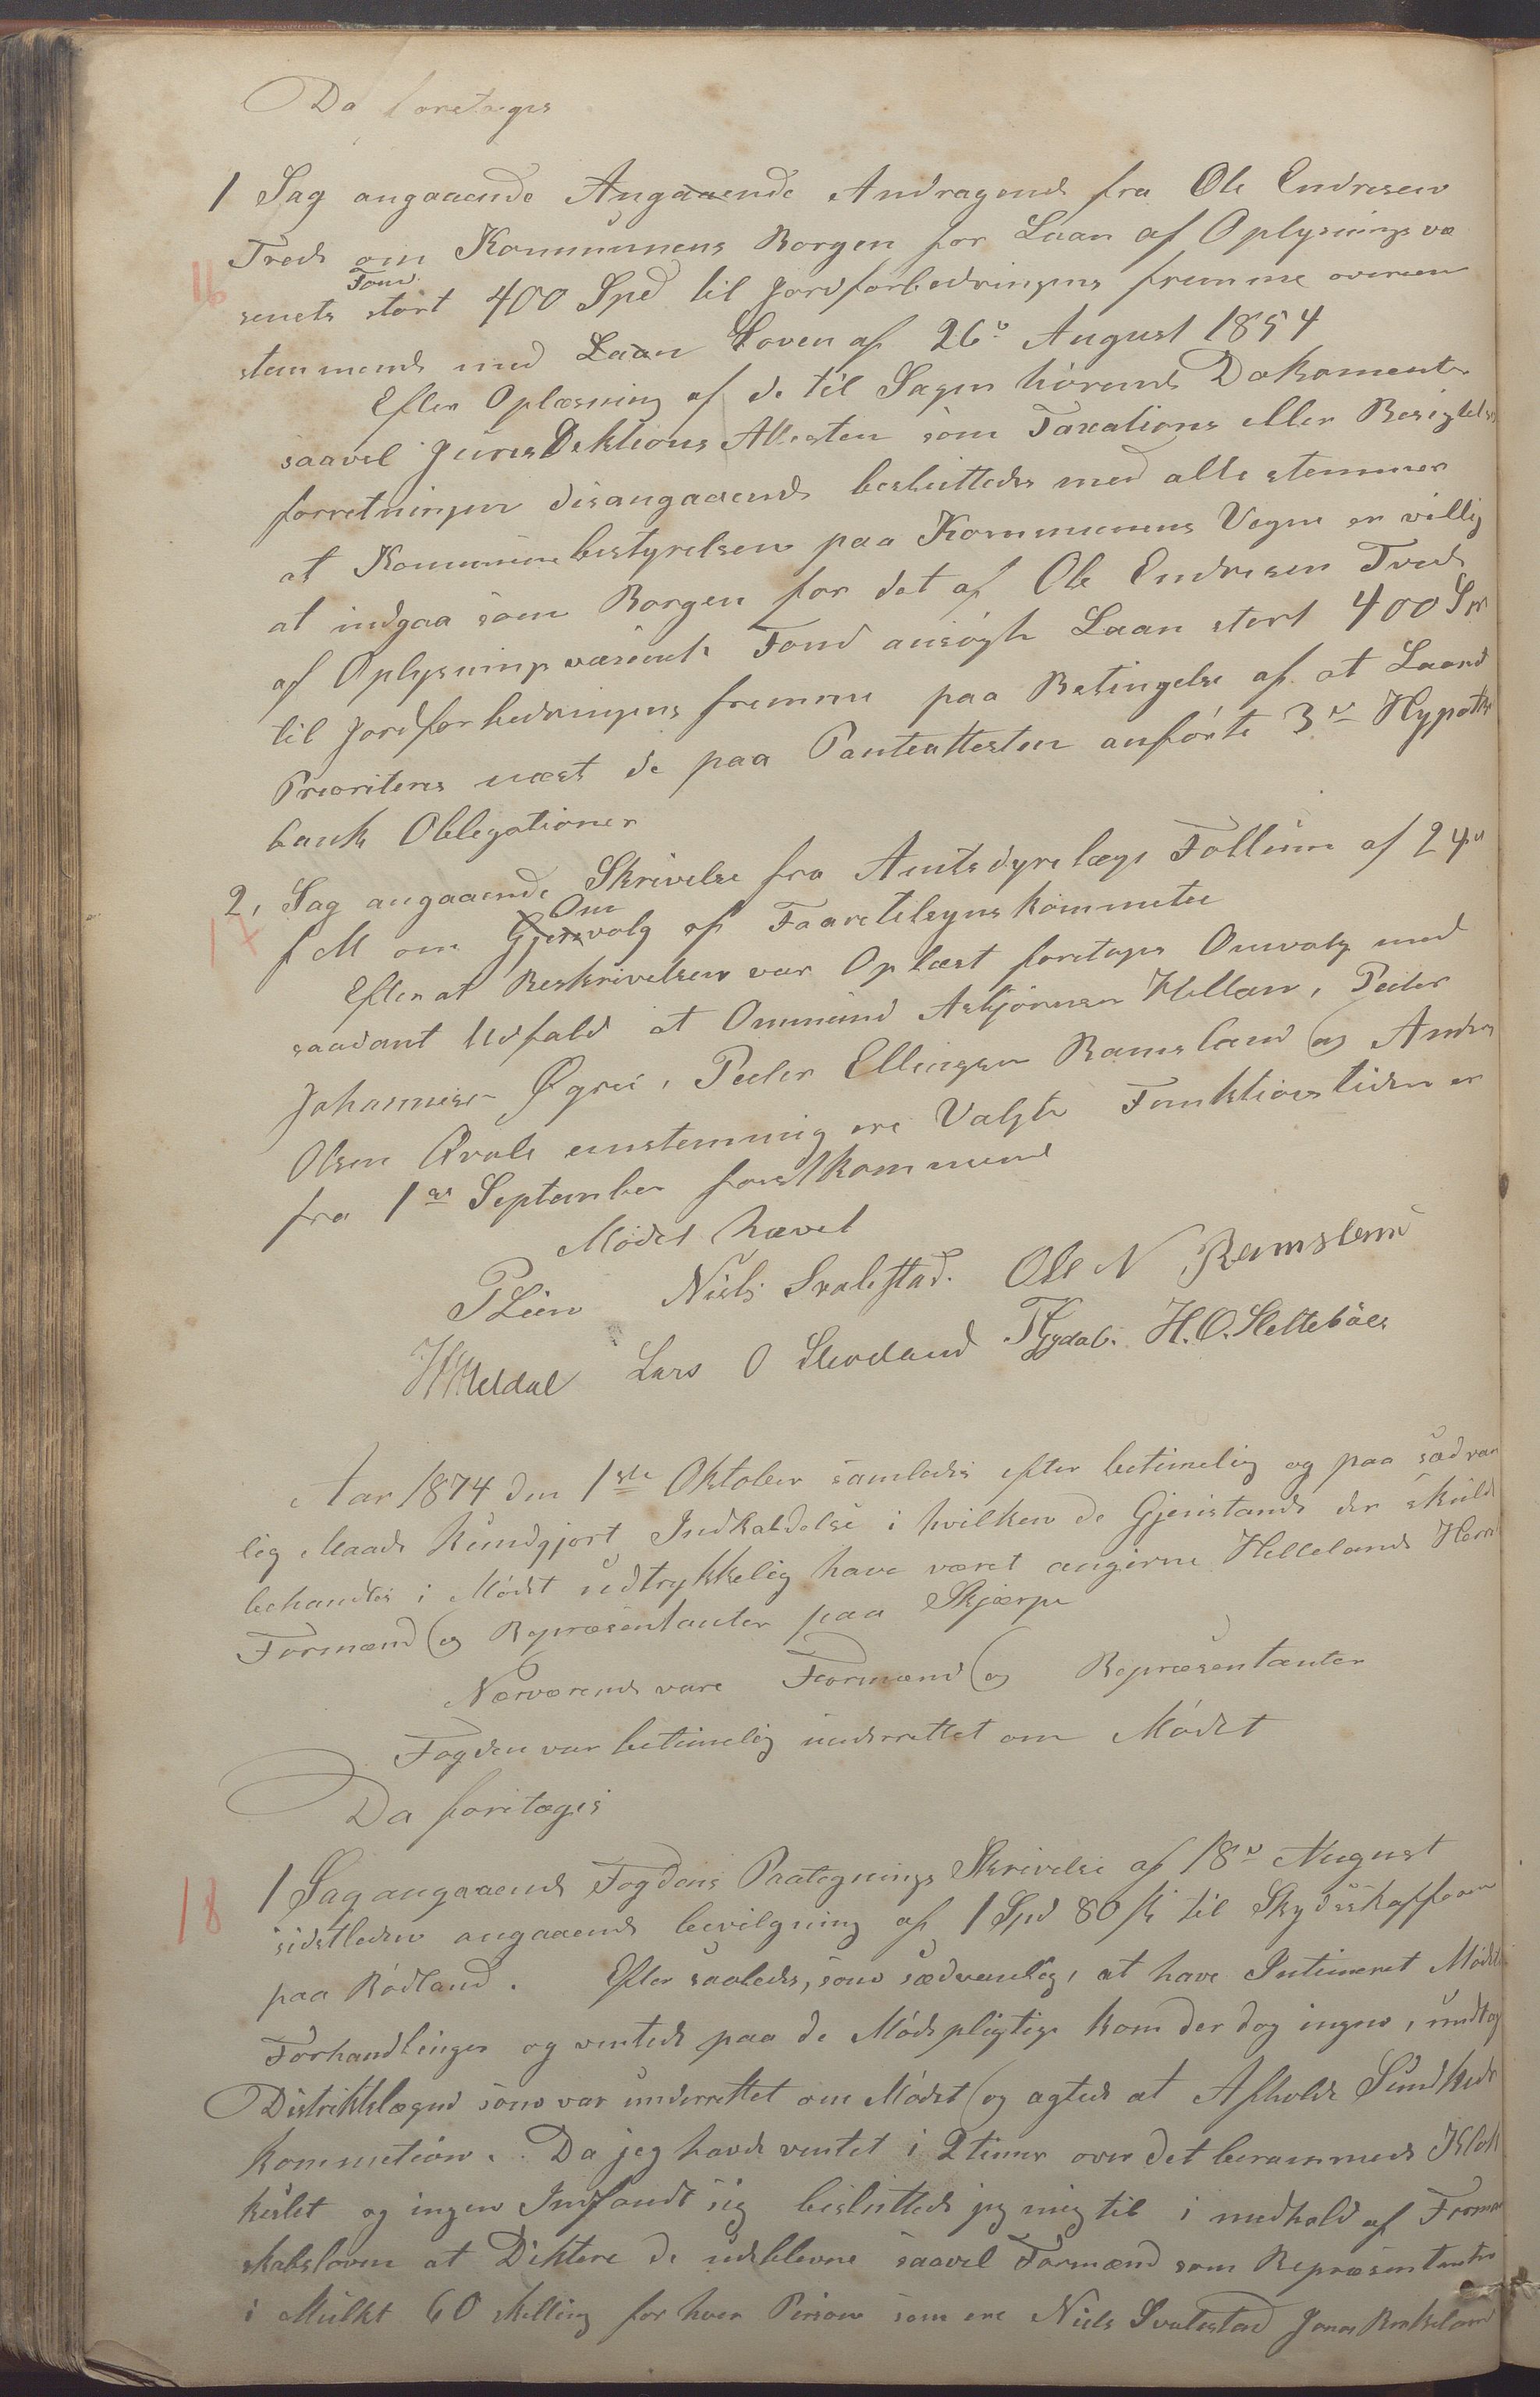 Da foretoges
1 Sag angaaende Angaaende Andragende fra Ole Endresen
Tveds om Kommunens Borgen for Laan af Oplysningsvæ
16
Fond
senets stort 400 Spd til Jordforbedringens fremme overeen
stemmende med Laan Loven af 26de August 1854
Efter Oplæsning af de til Sagen hørende Dokomenter
saavel JurisDiktions Attesten som Taxations eller Besigtelses
forretningen desangaaende besluttedes med alle stemmer
at Kommunebestyrelsen paa Kommunens Vegne er villig
at indgaa som Borgen for det af Ole Endresen Tveds
af Oplysningsvæsenets Fond ansøgte Laan stort 400 Sp
til Jordforbedringens fremme paa Betingelse af at Laanet
Prioriteres næst de paa Panteattesten anførte 3de Hypothe
bank Obligationer
2, Sag angaaende Skrivelse fra Amtsdyrelæge Follum af 24de
17
Om
f M om Gjenvalg af Faaretilsyns Kommitee
Efter at Beskrivelsen var Oplæst foretoges Omvalg med
saadant Udfald at Ommund Asbjørnsen Hellan, Peder
Johannesen Øgrei, Peder Ellingsen Ramsland og Andres
Olsen Qvale enstemmig ere Valgte Funktionstiden er
fra 1ste September førstkommend
Mødet hævet
P Lien Niels Svalestad. Ole N Ramsland
H Meldal Lars O Sleveland T Gydal. H. O. Slettebøe
Aar 1874 den 1ste Oktober samledes efter betimelig og paa sædvan
lig Maade Kundgjort Indkaldelse i hvilken de Gjenstande der skulde
behandles i Mødet udtrykkelig have været angivne Hellelands Herre
Formænd og Repræsentanter paa Skjærpe
Nærværende vare Formænd og Repræsentanter
Fogden var betimelig underrettet om Mødet
Da foretoges
18
1 Sag angaaende Fogdens Paategnings Skrivelse af 18de August
sidstleden angaaende bevilgning af 1 Spd 80 sk til Skydsskafferen
paa Rødland. Efter saaledes, som sædvanlig, at have Intimeret Mødets
Forhandlinger og ventede paa de Mødepligtige kom der dog ingen, undtag
Distriktslægend som var underrettet om Mødet og agtede at Afholde Sundheds
kommction. Da jeg havde ventet i 2 timer over det berammede Klok
keslet og ingen Indfandt sig besluttede jeg mig til i medhold af Forman
skabsloven at Diktere de udeblevne saavel Formænd som Repræsentanter
i Mulkt 60 skilling for hver Person som ere Niels Svalestad Jonas